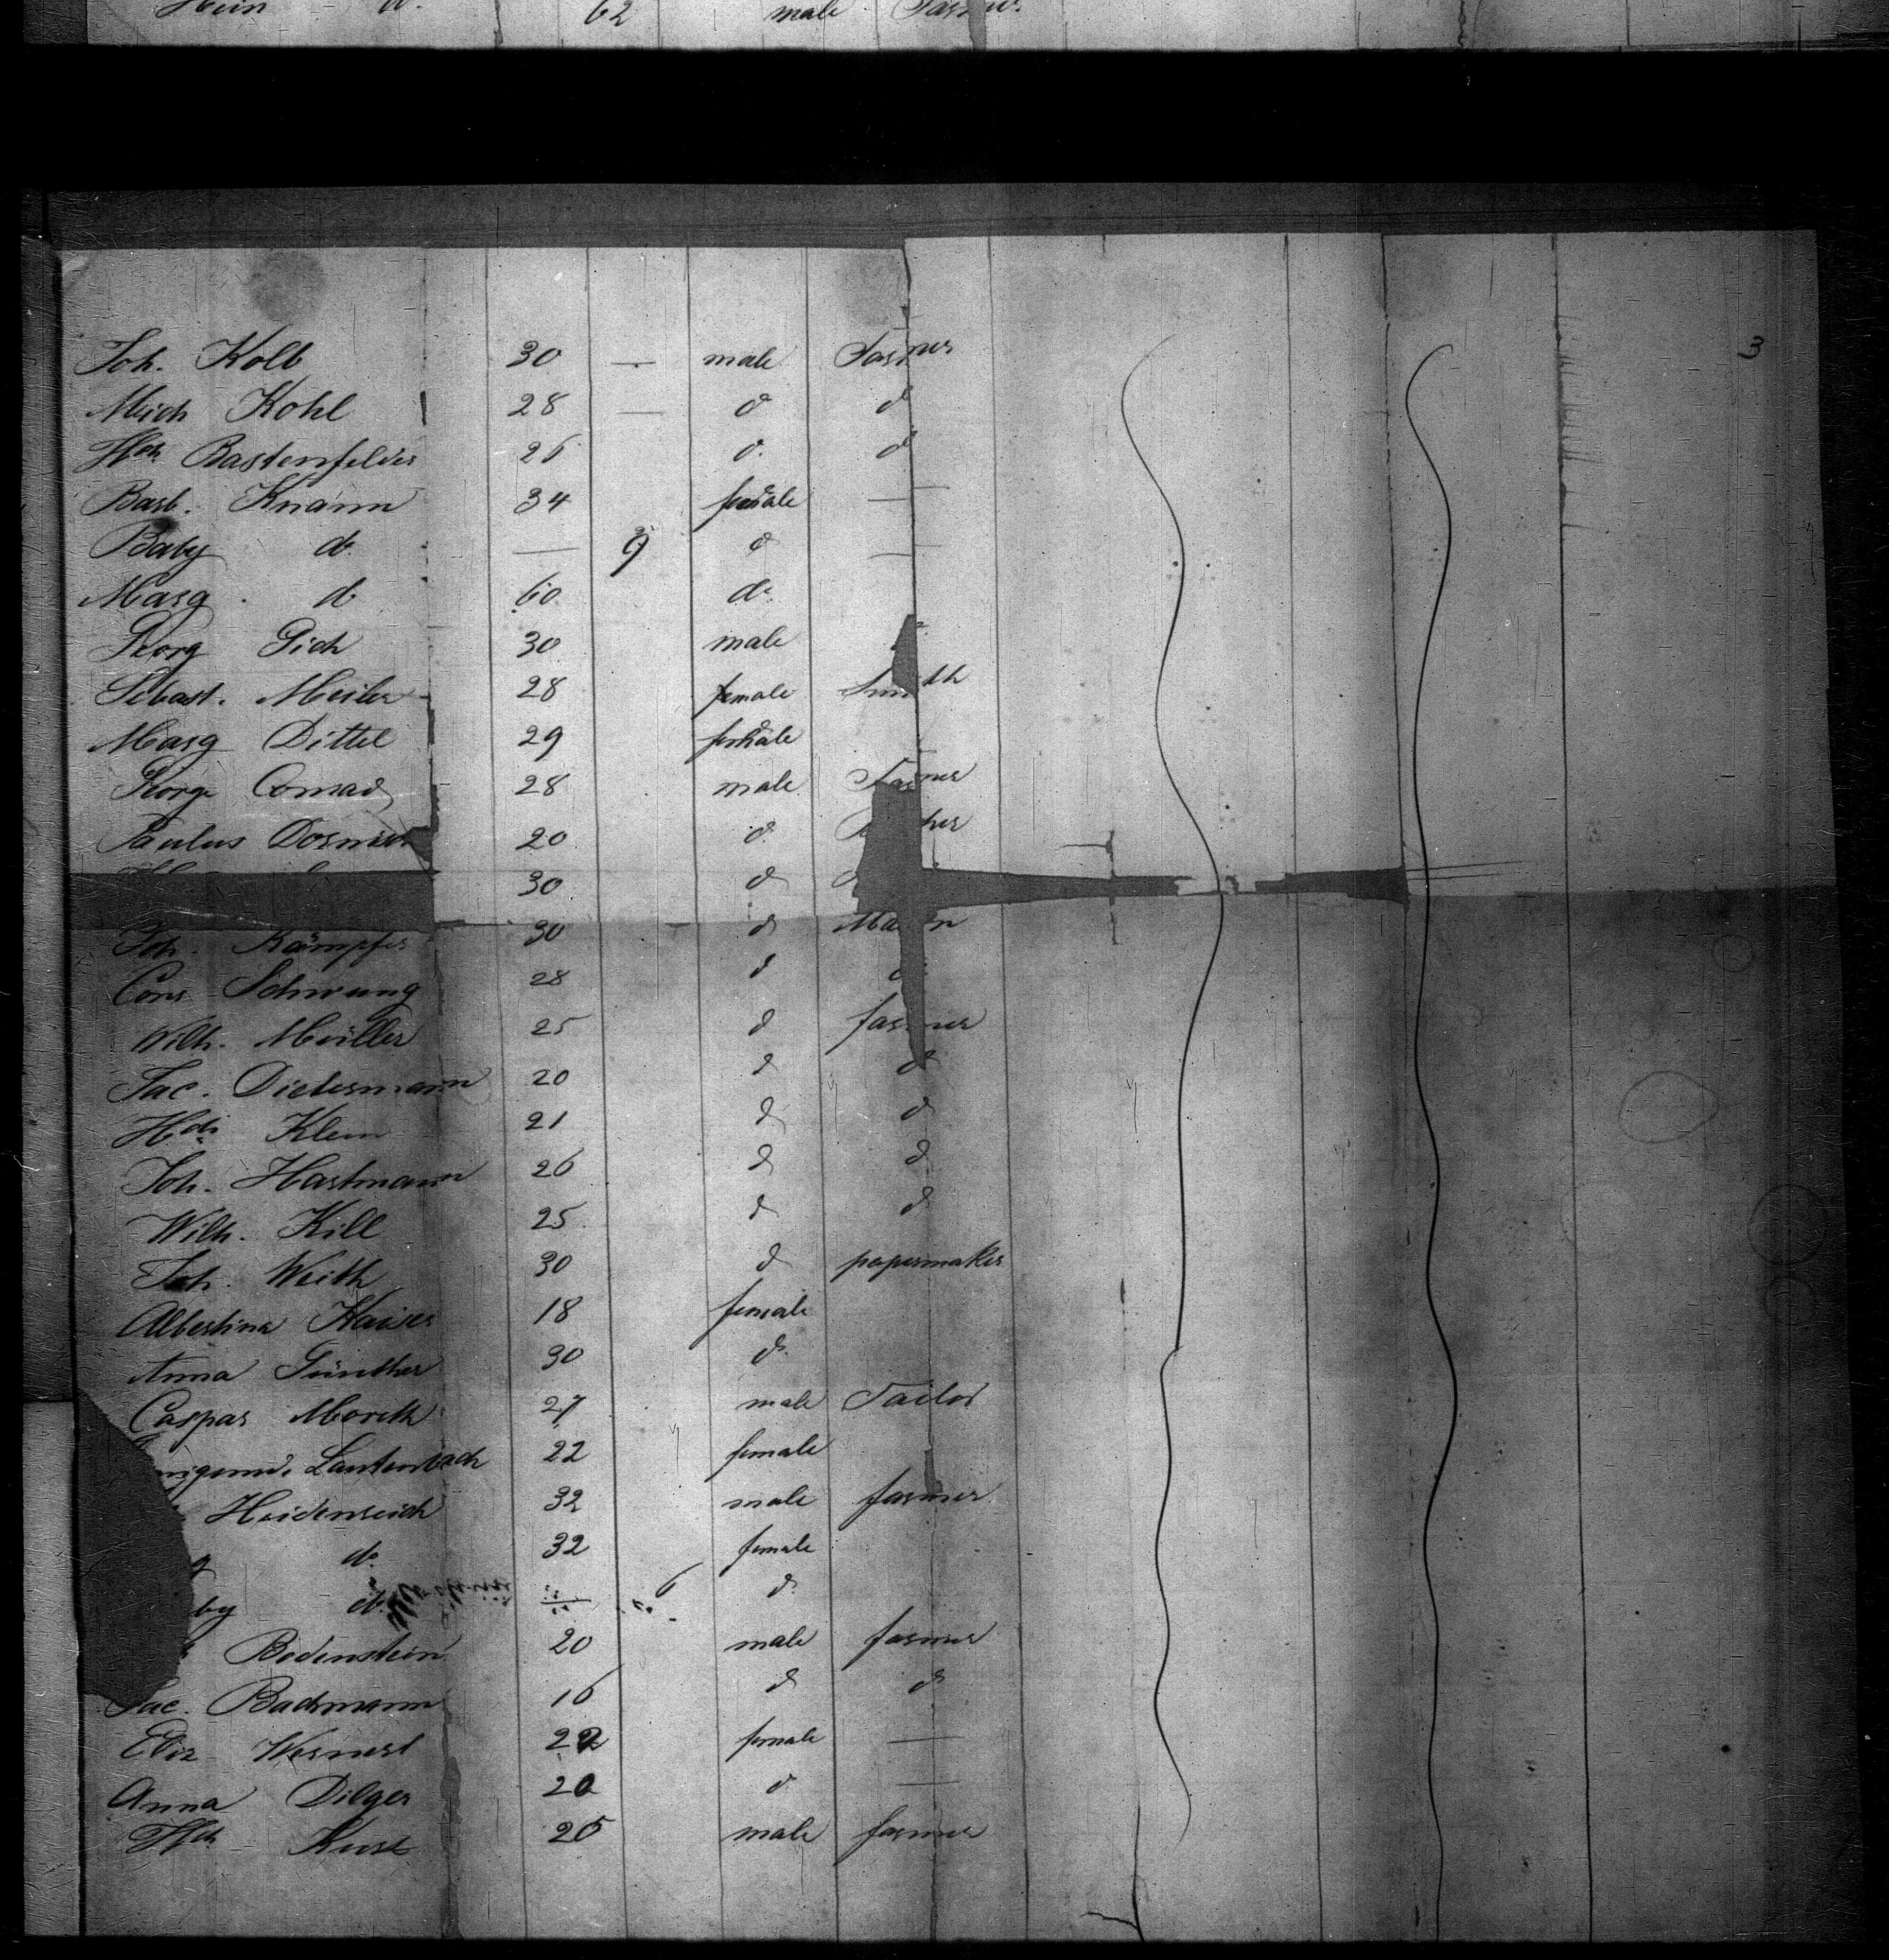 62 male Farmer
3
Joh. Kolb 30 — male Farmer
Mich Kohl 28 — do do
Hch Bastenfelder 26 do do
Barb. Knann 34 female —
Baby do — 9 do —
Marg. do 60 do
Georg Pich 30 male
Sebast. Meiler 28 male Smith
Marg Dittel 29 female
George Conrad 28 male Farmer
Paulus 20 do
30 do
Joh. Kämpfer 30 do Mason
Conr Schwung 28 do d
Wilh. Müller 25 do farmer
Jac. Dietermann 20 do do
Hch Klein 21 do do
Joh. Hartmann 26 do do
Wilh. Kill 25 do do
Joh. Weith 30 do papermaker
Albertina Kaiser 18 female
Anna Günther 30 do
Caspar Moreth 27 male Tailor
Lautenbach 22 female
Heidenreich 32 male farmer
do 32 female
by do — 6 do
Bodenstein 20 male farmer
Jac. Bachmann 16 do do
Eliz Wernert 22 female —
Anna Dilger 20 do —
Hch 25 male farmer